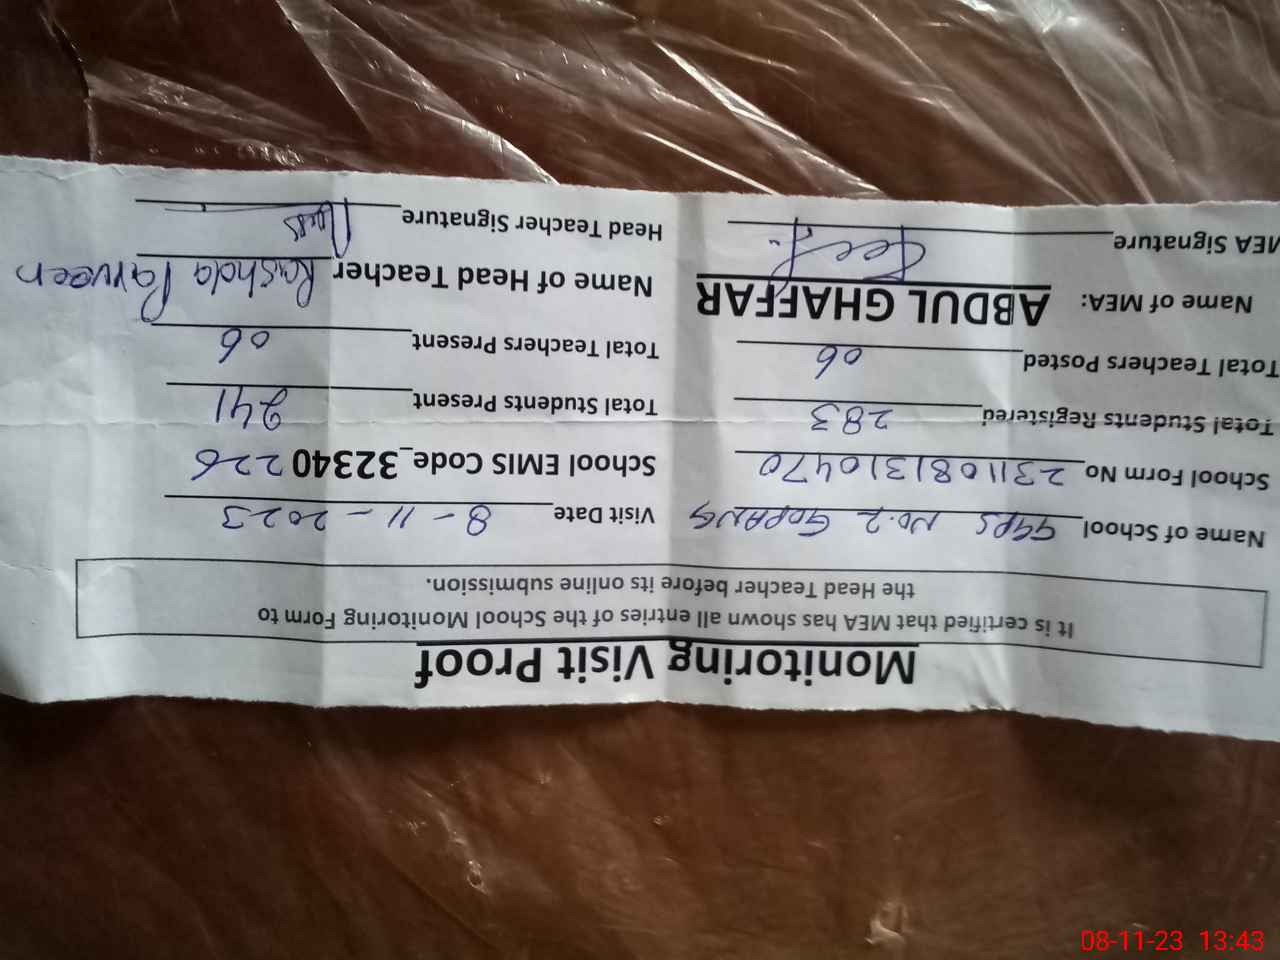 Monitoring Visit Proof
It is certified that MEA has shown all entries of the School Monitoring Form to
the Head Teacher before its online submission.
Name of School GGPS No.2 GOPANG Visit Date 8-11-2023
School Form No 2311081310470 School EMIS Code_32340226
Total Students Registered 283 Total Students Present 241
Total Teachers Posted 06 Total Teachers Present 06
Name of MEA: ABDUL GHAFFAR Name of Head Teacher Rashda Parveen
MEA Signature Head Teacher Signature
08-11-23 13:43